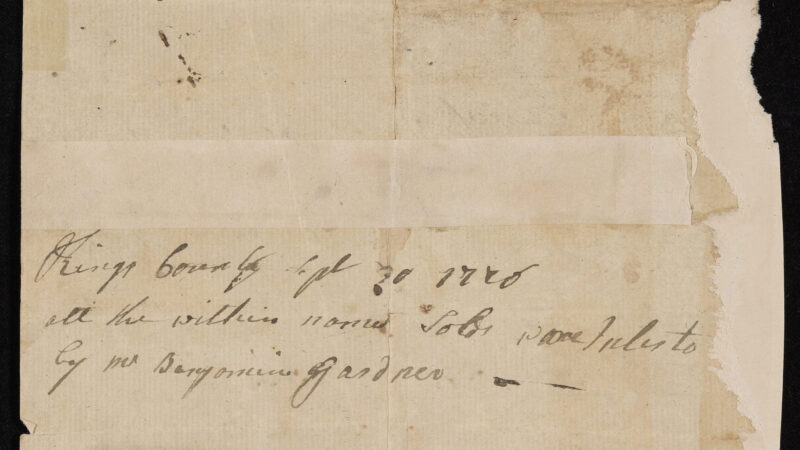 Kings County Sept 30 1776
all the within name Solds ware Inlesto
by mr Benjamin Gardner